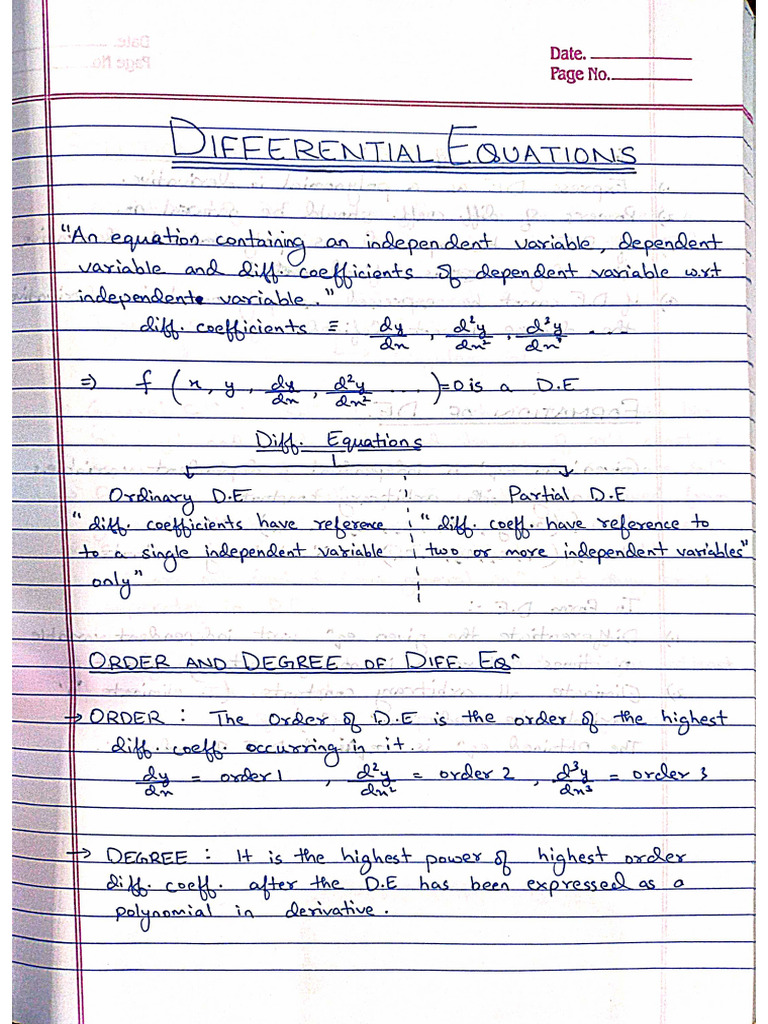 Date.
Page No.
DIFFERENTIAL EQUATIONS
"An equation containing an independent variable, dependent
variable and diff. coefficients of dependent variable w.r.t
independent variable."
diff. coefficients ≡ dy/dx, d²y/dx², d³y/dx³ ...
⇒ f(x, y, dy/dx, d²y/dx² ....)=0 is a D.E
Diff. Equations
Ordinary D.E
"diff. coefficients have reference
to a single independent variable
only"
Partial D.E
"diff. coeff. have reference to
two or more independent variables"
ORDER AND DEGREE OF DIFF. EQⁿ
→ ORDER : The order of D.E is the order of the highest
diff. coeff. occurring in it.
dy/dx = order 1 , d²y/dx² = order 2 , d³y/dx³ = order 3
→ DEGREE : It is the highest power of highest order
diff. coeff. after the D.E has been expressed as a
polynomial in derivative.